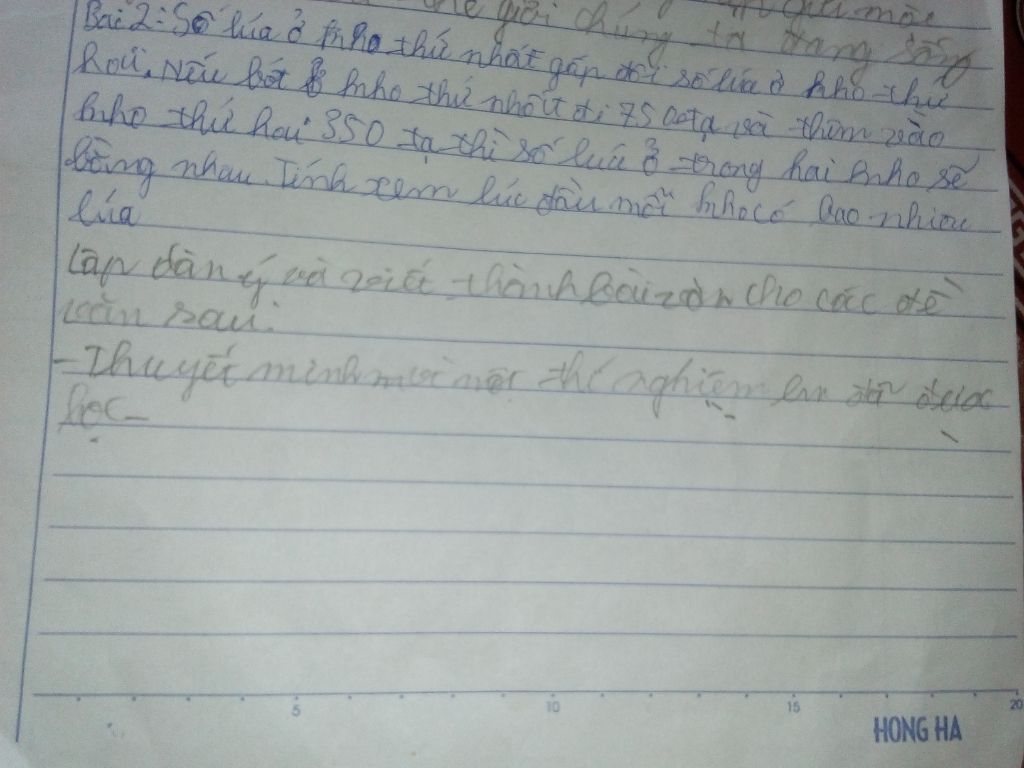 thế giới chúng ta đang sống
Bài 2: Số lúa ở kho thứ nhất gấp đôi số lúa ở kho thứ
hai. Nếu bớt ở kho thứ nhất đi 750 tạ và thêm vào
kho thứ hai 350 tạ thì số lúa ở trong hai kho sẽ
bằng nhau Tính xem lúc đầu mỗi kho có bao nhiêu
lúa
Lập dàn ý và viết thành bài văn cho các đề
văn sau:
- Thuyết minh một thí nghiệm em đã được
học -
5 10 15 20
HONG HA